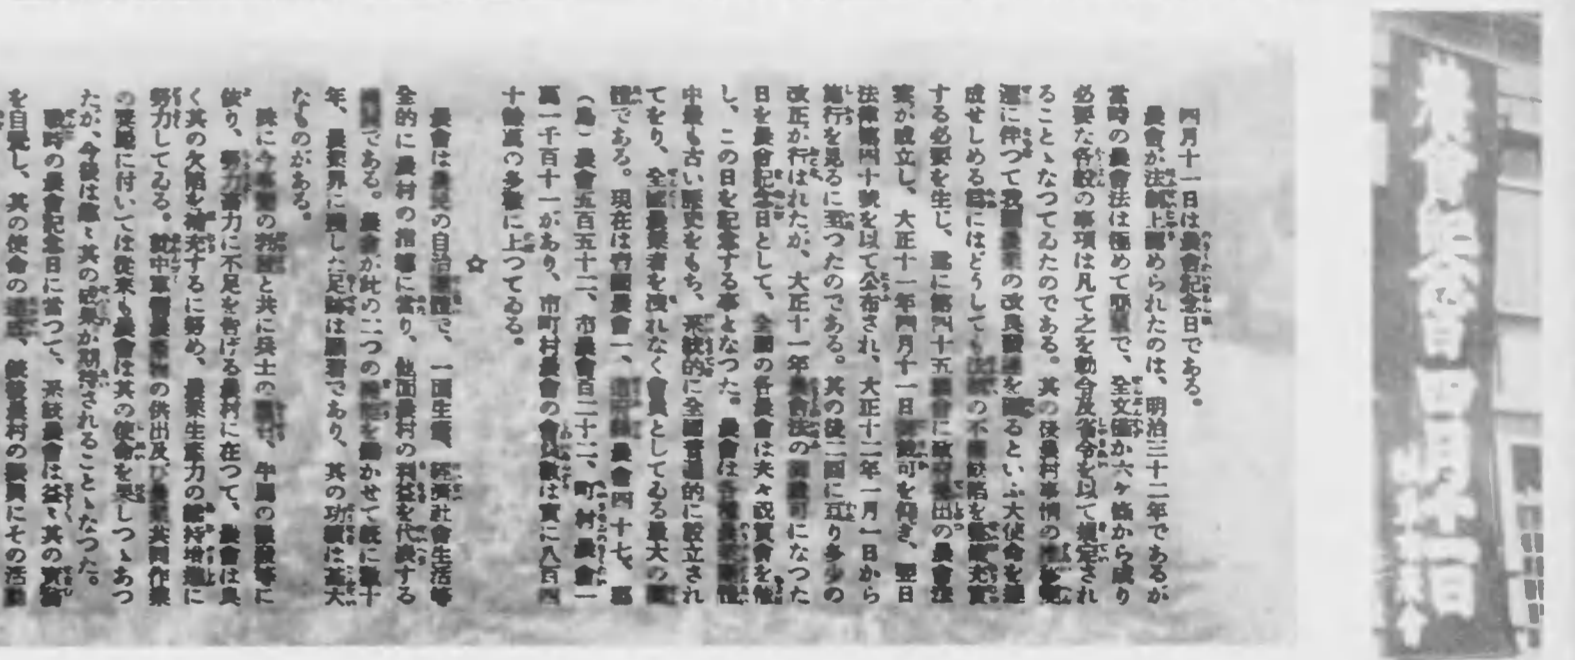 農會記念日 四月十一日
四月十一日は農會記念日である。
農會が法制上認められたのは、明治三十二年であるが
當時の農會法は極めて簡單で、全文僅か六ヶ條から成り
必要な各般の事項は凡て之を勅令及省令を以て規定され
ることゝなつてゐたのである。其の後農村事情の
運に伴つて我國農業の改良發達を圖るといふ大使命を達
成せしめる爲にはどうしても の不備缺陷を 充實
する必要を生じ、遂に第四十五議會に政府提出の農會法
案が成立し、大正十一年四月十一日御裁可を仰ぎ、翌日
法律第四十號を以て公布され、大正十二年一月一日から
施行を見るに至つたのである。其の後二回に亘り多少の
改正が行はれたが、大正十一年農會法の御裁可になつた
日を農會記念日として、全國の各農會は夫々祝賀會を催
し、この日を記念する事となつた。農會は各種農業團體
中最も古い歴史をもち、系統的に全國普遍的に設立され
てをり、全國農業者を洩れなく會員としてゐる最大の團
體である。現在は帝國農會一、道府縣農會四十七、郡
(島)農會五百五十二、市農會百二十二、町村農會一
萬一千百十一があり、市町村農會の會員數は實に八百四
十餘萬の多數に上つてゐる。
☆
農會は農民の自治團體で、一面生産、經濟社會生活等
全的に農村の指導に當り、他面農村の利益を代表する
機關である。農會が此の二つの機能を働かせて既に數十
年、農業界に殘した足跡は顯著であり、其の功績は甚大
なものがある。
殊に今事變の と共に兵士の 、牛馬の徴發等に
依り、勞力畜力に不足を告げる農村に在つて、農會は良
く其の欠陷を補充するに努め、農業生産力の維持増進に
努力してゐる。就中軍需農 の供出及び農業共同作業
の奬勵に付いては從來も農會は其の使命を果しつゝあつ
たが、今後は愈々其の成果が期待されることゝなつた。
戰時の農會記念日に當つて、系統農會は益々其の責務
を自覺し、其の使命の 、銃後農村の振興にその活動